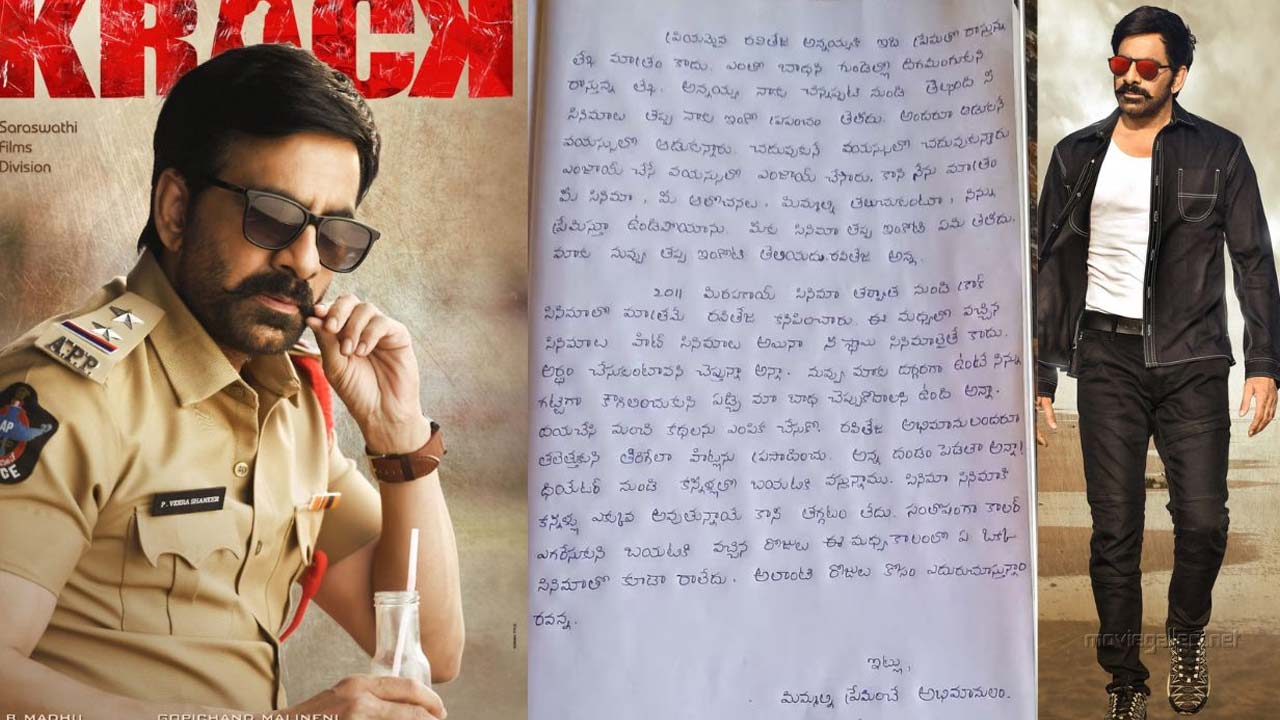 KRACK
Saraswathi
Films
Division
A.P.P
AP
CE
P. VEERA SHANKER
B MADHU GOPICHAND MALINENI
ప్రియమైన రవితేజ అన్నయ్యకి ఇది ప్రేమతో రాస్తున్న
లేఖ మాత్రం కాదు. ఎంతో బాధని గుండెల్లో దిగమింగుకుని
రాస్తున్న లేఖ. అన్నయ్య నాకు చిన్నప్పటి నుండి తెల్సింది నీ
సినిమాలు తప్ప నాకు ఇంకో ప్రపంచం తెలీదు. అందరూ ఆడుకునే
వయస్సులో ఆడుకున్నారు. చదువుకునే వయస్సులో చదువుకున్నారు
ఎంజాయ్ చేసే వయస్సులో ఎంజాయ్ చేసారు. కాని నేను మాత్రం
మీ సినిమా, మీ ఆలోచనలు, మిమ్మల్ని తలుచుకుంటూ, నిన్ను
ప్రేమిస్తూ ఉండిపోయాను. మీకు సినిమా తప్ప ఇంకోటి ఏమి తెలీదు.
మాకు నువ్వు తప్ప ఇంకోటి తెలియదు రవితేజ అన్న.
2011 మిరపకాయ్ సినిమా తర్వాత నుండి క్రాక్
సినిమాలో మాత్రమే రవితేజ కనిపించారు. ఈ మధ్యలో వచ్చిన
సినిమాలు హిట్ సినిమాలు అయినా నీ స్థాయి సినిమాలైతే కాదు.
అర్థం చేసుకుంటావని చెప్తున్నా అన్నా. నువ్వు మాకు దగ్గరగా ఉంటే నిన్ను
గట్టిగా కౌగిలించుకుని ఏడ్చి మా బాధ చెప్పుకోవాలని ఉంది అన్నా.
దయచేసి మంచి కథలను ఎంపిక చేసుకో. రవితేజ అభిమానులందరూ
తలెత్తుకుని తిరిగేలా హిట్లును ప్రసాదించు. అన్న దండం పెడతా అన్నా!
థియేటర్ నుండి కన్నీళ్ళతో బయటకి వస్తున్నాము. సినిమా సినిమాకి
కన్నీళ్ళు ఎక్కువ అవుతున్నాయే కాని తగ్గటం లేదు. సంతోషంగా కాలర్
ఎగరేసుకుని బయటకి వచ్చిన రోజులు ఈ మధ్య కాలంలో ఏ ఒక్క
సినిమాతో కూడా రాలేదు. అలాంటి రోజులు కోసం ఎదురుచూస్తున్నాం
రవన్న.
ఇట్లు,
మిమ్మల్ని ప్రేమించే అభిమానులం.
moviegalleri.net